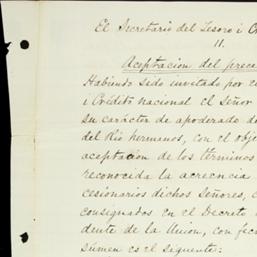 El Secretario del Tesoro i C
11.
Aceptacion del preca
Habiendo sido invitado por e
i Crédito nacional el Señor
su carácter de apoderado d
del Rio hermanos, con el obj
aceptation de los términos
reconocida la acreencia
cesionarios dichos Señores,
consignados en el Decreto
dente de la Union, con fec
súmen es el siguiente: